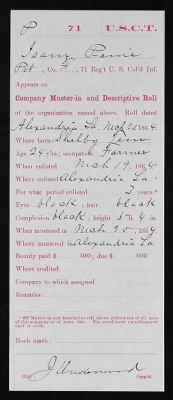 P 71 U.S.C.T.
Pvt, Co. F, 71 Reg't U. S. Col'd Inf.
Appears on
Company Muster-in and Descriptive Roll
of the organization named above. Roll dated
Alexandria La, Mch 20 1864
Where born Shelby Tenn
Age 24 y'rs; occupation Farmer
When enlisted Mch 19, 1864
Where enlisted Alexandria La
For what period enlisted 3 years.
Eyes black; hair black
Complexion black; height 5 ft. 4 in.
When mustered in Mch 20, 1864
Where mustered in Alexandria La
Bounty paid $ 100; due $ 100
Where credited
Company to which assigned
Remarks:
Book mark:
J Underwood
Copyist.